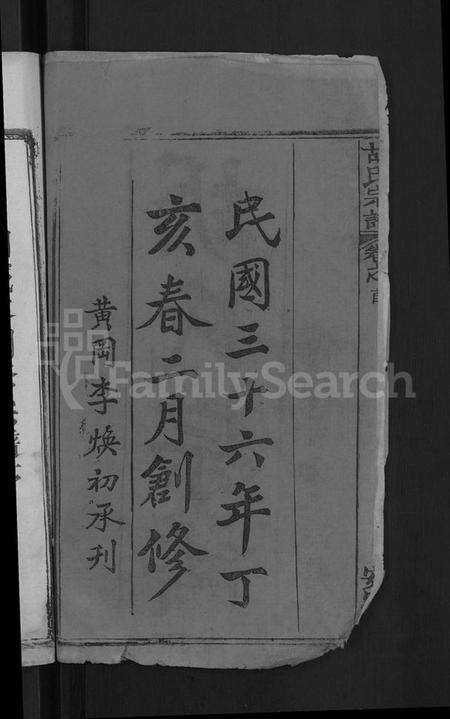 胡氏宗譜 卷之首
民國三十六年丁
亥春二月創修
黃岡李煥初承刋
FamilySearch